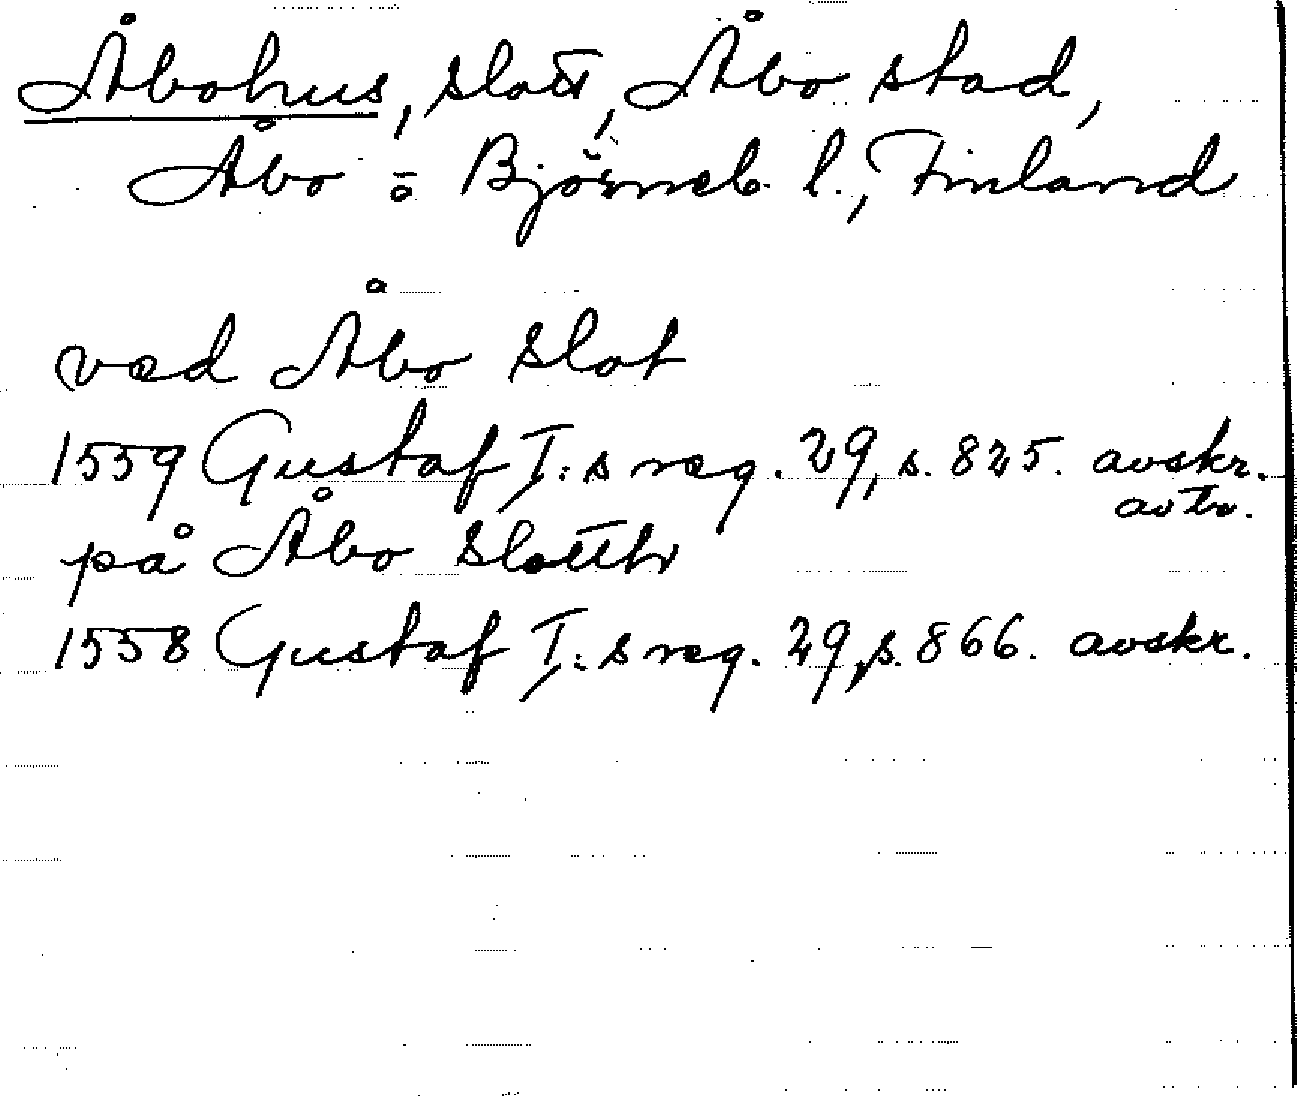 Åbohus, slott, Åbo stad,
Åbo o Björneb. l., Finland
ved Åbo Slot
1559 Gustaf I:s reg. 29, s. 825. avskr.
avtr.
på Åbo Slotth
1558 Gustaf I:s reg. 29, s. 866. avskr.